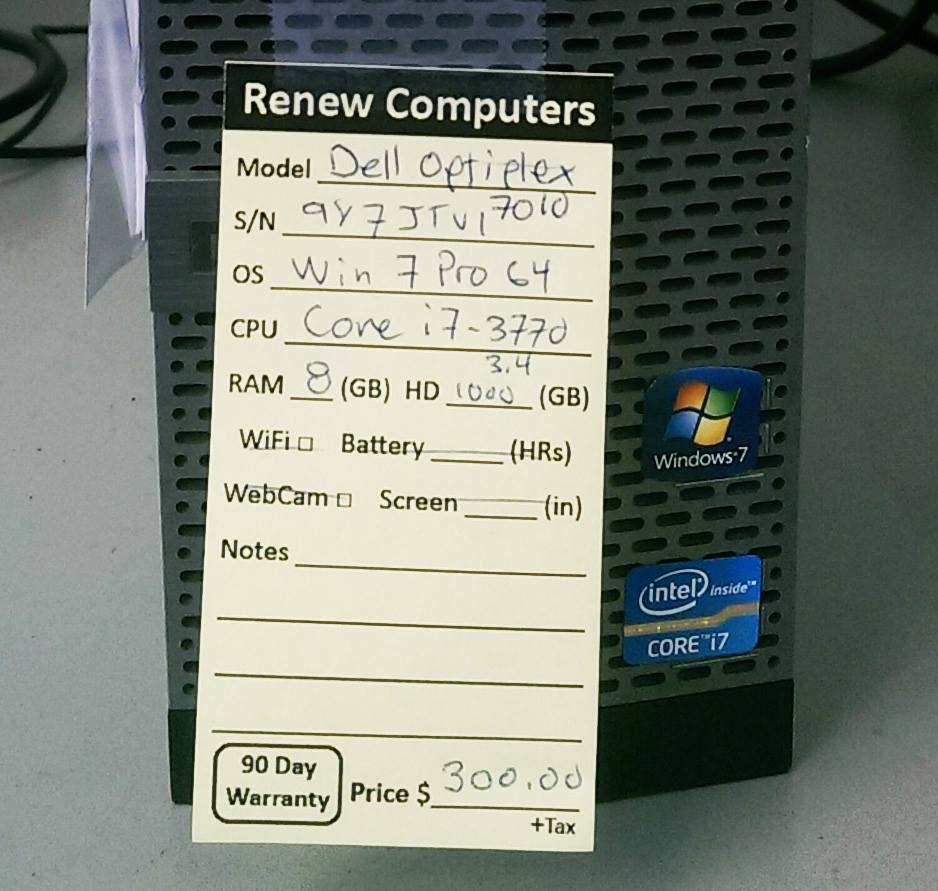 Renew Computers
Model Dell Optiplex
7010
S/N 9Y7JTV1
OS Win 7 Pro 64
CPU Core i7-3770
3.4
RAM 8 (GB) HD 1000 (GB)
WiFi □ Battery ____ (HRs)
WebCam □ Screen ____ (in)
Notes
90 Day
Warranty
Price $ 300.00
+Tax
Windows 7
intel inside™
CORE™ i7